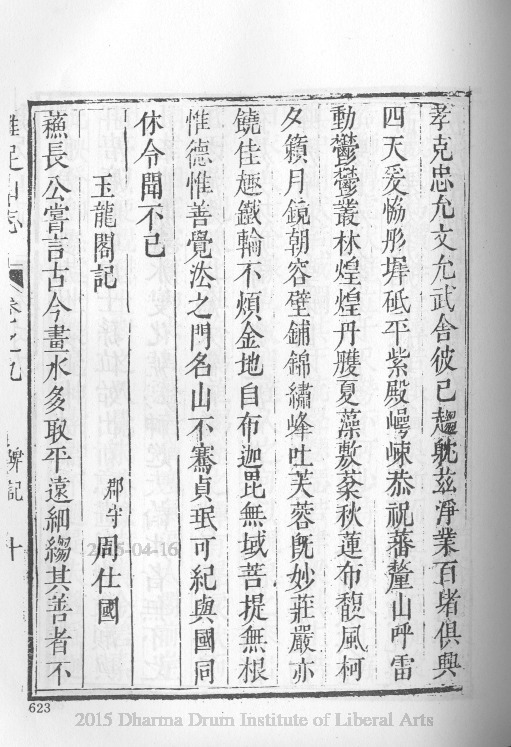 孝克忠允文允武舍彼己趨躭茲淨業百堵俱興
四天爰恊彤墀砥平紫殿嶹崠恭祝蕃釐山呼雷
動鬱鬱叢林煌煌丹雘夏藻敷蓁秋蓮布馥風柯
夕籟月鏡朝容壁鋪錦繡峰吐芙蓉旣妙莊嚴亦
饒佳趣鐵輪不煩金地自布迦毘無域菩提無根
惟德惟善覺泫之門名山不騫貞珉可紀與國同
休令聞不已
玉龍閣記
郡守周仕國
蘓長公嘗言古今畫水多取平遠細縐其善者不
雞足山志
卷之九
碑記
十
623
2015-04-16
2015 Dharma Drum Institute of Liberal Arts